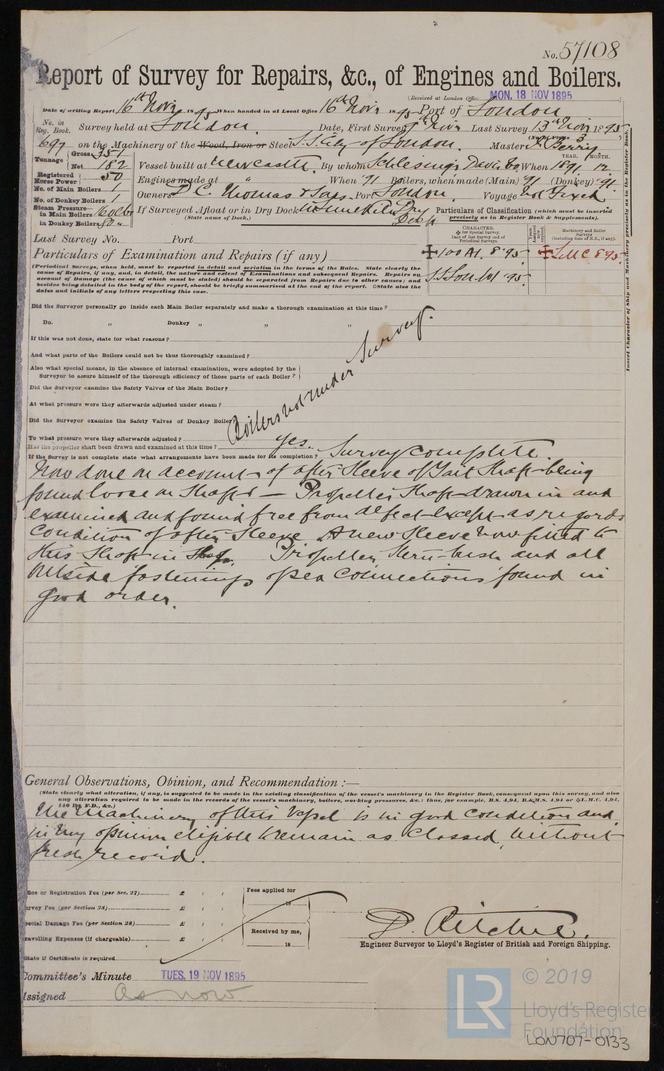 No. 57108
Report of Survey for Repairs, &c., of Engines and Boilers.
(Received at London Office MON. 18 NOV 1895
Date of writing Report 16th Nov 1895 When handed in at Local Office 16th Nov 1895 Port of London
No. in Reg. Book. Survey held at London Date, First Survey Nov Last Survey 13th Nov 1895
697 on the Machinery of the Wood, Iron or Steel S.S. City of London Master J. Berry
Tonnage Gross 351 Net 182 Vessel built at Newcastle By whom Schlesinger Davis & Co When 1891 12
YEAR. MONTH.
Registered Horse Power 50 Engines made at " When 91 Boilers, when made (Main) 91 (Donkey) 91
No. of Main Boilers 1 Owners Port London Voyage
No. of Donkey Boilers 1
Steam Pressure in Main Boilers 160 lbs in Donkey Boilers If Surveyed Afloat or in Dry Dock Limekiln Dry Dock
(State name of Dock.)
Particulars of Classification (which must be inserted precisely as in Register Book & Supplements).
Last Survey No. Port
Particulars of Examination and Repairs (if any)
100A1. 8.95 LMC 8.95
(Periodical Surveys, when held, must be reported in detail and seriatim in the terms of the Rules. State clearly the
cause of Repairs, if any, and, in detail, the nature and extent of Examinations and subsequent Repairs. Repairs on
account of Damage (the cause of which must be stated) should be separated from Repairs due to other causes; and
besides being detailed in the body of the report, should be briefly summarised at the end of the report. State also the
dates and initials of any letters respecting this case.
Did the Surveyor personally go inside each Main Boiler separately and make a thorough examination at this time?
Do. " Donkey " " "
If this was not done, state for what reasons?
And what parts of the Boilers could not be thus thoroughly examined?
Also what special means, in the absence of internal examination, were adopted by the
Surveyor to assure himself of the thorough efficiency of those parts of each Boiler?
Did the Surveyor examine the Safety Valves of the Main Boiler?
At what pressure were they afterwards adjusted under steam?
Did the Surveyor examine the Safety Valves of Donkey Boiler
To what pressure were they afterwards adjusted?
Boilers not under Survey.
Has the propeller shaft been drawn and examined at this time? Yes.
If the Survey is not complete state what arrangements have been made for its completion? Survey complete.
Now done on account of after Sleeve of Tail Shaft being
found loose on Shaft — Propeller Shaft drawn in and
examined and found free from defect except as regards
condition of after Sleeve. A new Sleeve now fitted to
this Shaft in Shop. Propeller, stern bush and all
outside fastenings of sea connections found in
good order.
General Observations, Opinion, and Recommendation :—
(State clearly what alteration, if any, is suggested to be made in the existing classification of the vessel's machinery in the Register Book, consequent upon this survey, and also
any alteration required to be made in the records of the vessel's machinery, boilers, working pressures, &c.: thus, for example, B.S. 4.94, B.&M.S. 4.94 or L.M.C. 4.94,
140 lbs. F.D., &c.)
The machinery of this Vessel is in good condition and
in my opinion eligible to remain as classed, without
fresh record.
Office or Registration Fee (per Sec. 27) £
Survey Fee (per Section 28) £
Special Damage Fee (per Section 28) £
Travelling Expenses (if chargeable) £
Fees applied for 18
Received by me, 18
State if Certificate is required
D. Ritchie.
Engineer Surveyor to Lloyd's Register of British and Foreign Shipping.
Committee's Minute TUES. 19 NOV 1895
Assigned As now
LR © 2019
Lloyd's Register
Foundation
LON707-0133